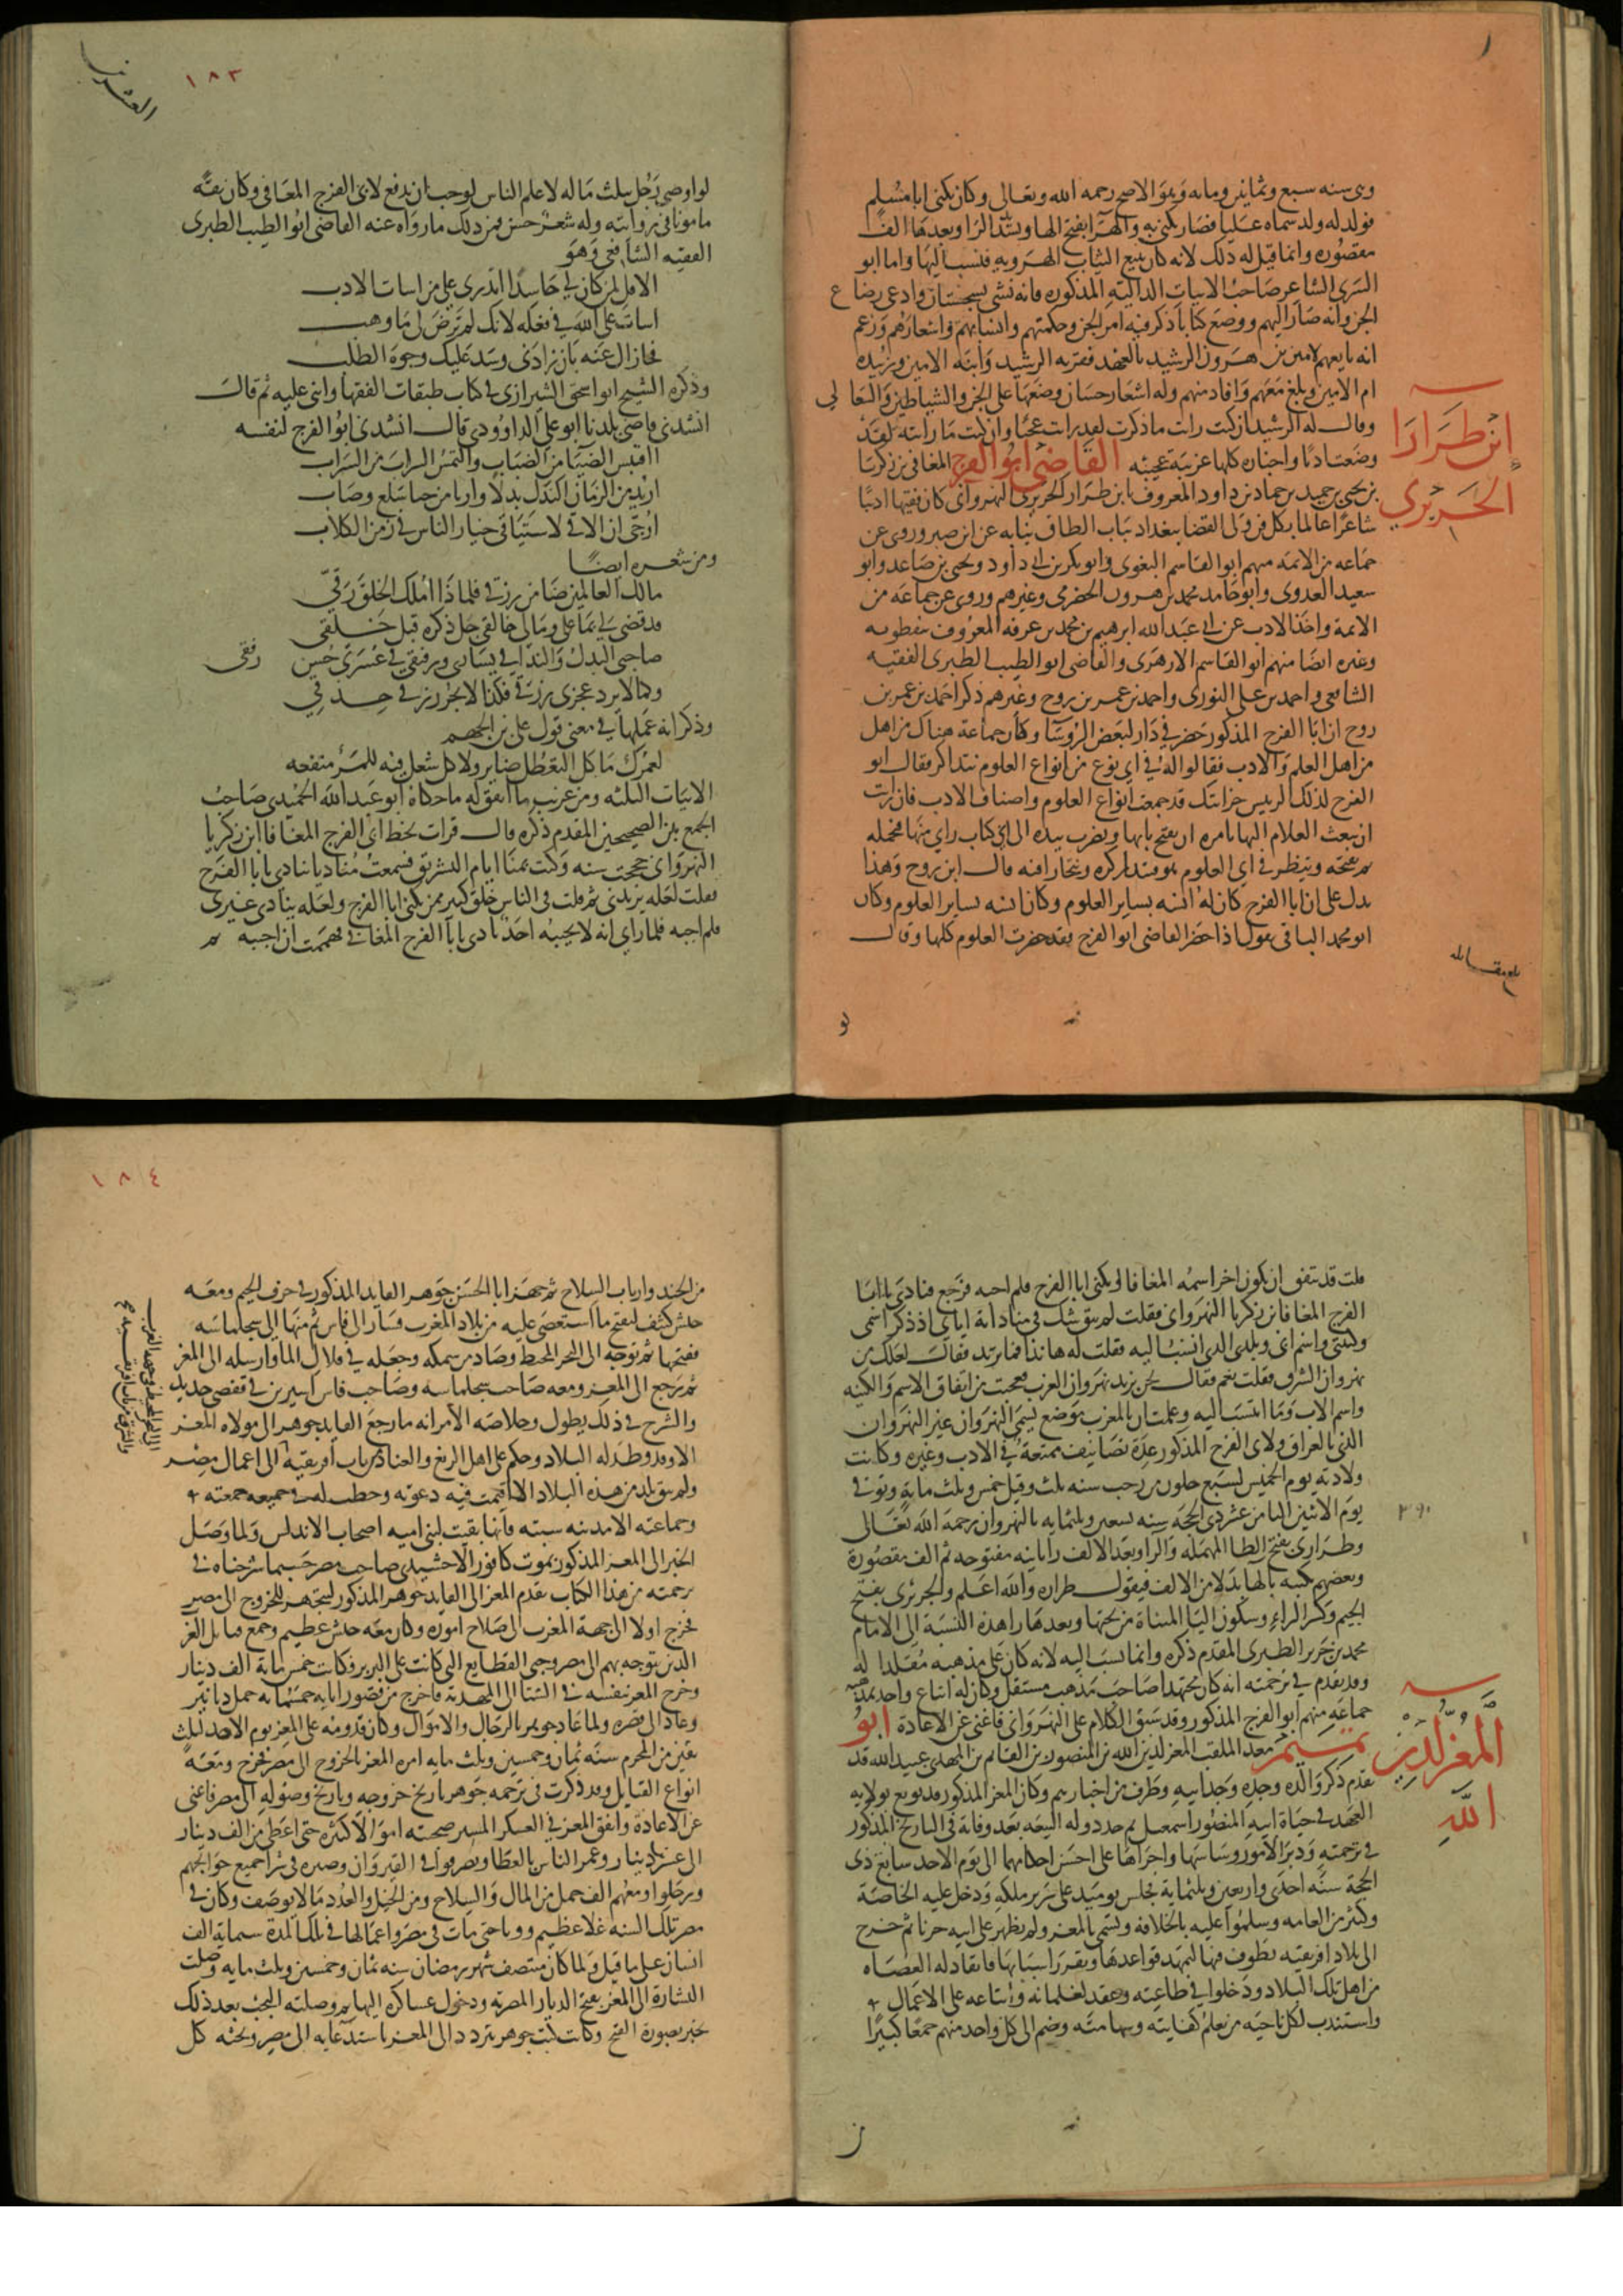 وفى سنه سبع وثمانين ومايه وهو الاصح رحمه الله وتعالى وكان يكنى ابا مسلم
فولد له ولد سماه عليا فصار يكنى به والهرا بفتح الها وتشد الرا وبعدها الف
مقصوره وانما قيل له ذلك لانه كان يبيع الثياب الهرويه فنسب اليها واما ابو
السرى الشاعر صاحب الابيات الداليه المذكوره فانه نشى بسجستان وادعى رضاع
الجن وانه صار اليهم ووضع كتابا ذكر فيه امر الجن وحكمتهم وانسابهم واشعارهم وزعم
انه بايعهم لامين بن هرون الرشيد بالعهد فقربه الرشيد وابنه الامين وزبيده
ام الامين وبلغ معهم وافاد منهم وله اشعار حسان وضعها على الجن والشياطين والسعالى
وقال له الرشيد ان كنت رايت ما ذكرت لقد رايت عجبا وان كنت ما رايته لقد
وضعت ادبا واخباره كلها غريبه عجيبه القاضى ابو الفرج المعافى بن زكريا
ابن طرارا
الجريرى
بن يحيى بن حميد بن حماد بن داود المعروف بابن طرارا الجريرى النهروانى كان فقيها اديبا
شاعرا عالما بكل فن ولى القضا ببغداد بباب الطاق نيابه عن ابن صبر وروى عن
جماعه من الايمه منهم ابو القاسم البغوى وابو بكر بن ابى داود ويحيى بن صاعد وابو
سعيد العدوى وابو حامد محمد بن هرون الحضرمى وغيرهم وروى عن جماعه من
الائمة واخذ الادب عن ابى عبد الله ابرهيم بن محمد بن عرفه المعروف بنفطويه
وغيره ايضا منهم ابو القاسم الازهرى والقاضى ابو الطيب الطبرى الفقيه
الشافعى واحمد بن على التوزى واحمد بن عمر بن روح وغيرهم ذكر احمد بن عمر بن
روح ان ابا الفرج المذكور حضر فى دار لبعض الروسا وكان جماعة هناك من اهل
من اهل العلم والادب فقالوا له فى اى نوع من انواع العلوم نتذاكر فقال ابو
الفرج لذلك الرييس خزانتك قد جمعت انواع العلوم واصناف الادب فان رايت
ان تبعث الغلام اليها تامره ان يفتح بابها ويضرب بيده الى اى كتاب راى منها فيحمله
ثم يفتحه وينظر فى اى العلوم هو فنتذاكره ونتجارا فيه قال ابن روح وهذا
يدل على ان ابا الفرج كان له انسه بساير العلوم وكان انسه بساير العلوم وكان
ابو محمد الباقى يقول اذا حضر القاضى ابو الفرج فقد حضرت العلوم كلها وقال
بلغ مقابله
١٨٣
لو اوصى رجل بثلث ماله لاعلم الناس لوجب ان يدفع لابى الفرج المعافى وكان ثقه
مامونا فى روايته وله شعر حسن فمن ذلك ما رواه عنه القاضى ابو الطيب الطبرى
الفقيه الشافعى وهو
الا قل لمن كان لى حاسدا اتدرى على من اسات الادب
اسات على الله فى فعله لانك لم ترض لى ما وهب
فجازاك عنه بان زادنى وسد عليك وجوه الطلب
وذكره الشيخ ابو اسحق الشيرازى فى كتاب طبقات الفقها واثنى عليه ثم قال
انشدنى قاضى بلدنا ابو على الداوودى قال انشدنى ابو الفرج لنفسه
ااقتبس الضيا من الضباب والتمس السراب من السراب
اريد من الزمان النذل بذلا واريا من جنا سلع وصاب
ارجى ان الاقى لاشتياقى خيار الناس فى زمن الكلاب
ومن شعره ايضا
مالك العالمين ضامن رزقى فلماذا املك الخلق رقى
قد قضى لى بما على وما لى خالقى جل ذكره قبل خلقى
صاحبى البذل والندا فى يسارى ورفيقى فى عسرى حسن رفقى
وكما لا يرد عجزى رزقى فكذا لا يجر رزقى حذقى
وذكر انه عملها فى معنى قول على بن الجهم
لعمرك ما كل التعطل ضاير ولا كل شغل فيه للمرء منفعه
الابيات الثلثه ومن غريب ما اتفق له ما حكاه ابو عبد الله الحميدى صاحب
الجمع بين الصحيحين المقدم ذكره قال قرات بخط ابى الفرج المعافا ابن زكريا
النهروانى حججت سنه وكنت بمنا ايام التشريق فسمعت مناديا ينادى يا ابا الفرج
فقلت لعله يريدنى ثم قلت فى الناس خلق كبير ممن يكنى ابا الفرج ولعله ينادى غيرى
فلم اجبه فلما راى انه لا يجيبه احد نادى يا ابا الفرج المعافى فهممت ان اجيبه ثم
قلت قد يتفق ان يكون اخر اسمه المعافا ويكنى ابا الفرج فلم اجبه فرجع فنادى يا ابا
الفرج المعافا بن زكريا النهروانى فقلت لم يبق شك فى مناداته اياى اذ ذكر اسمى
وكنيتى واسم ابى وبلدى الذى انسب اليه فقلت له ها نذا فما تريد فقال لعلك من
نهروان الشرق فقلت نعم فقال نحن نريد نهروان الغرب فعجبت من اتفاق الاسم والكنيه
واسم الاب وما انتسب اليه وعلمت ان بالمغرب موضع يسمى النهروان غير النهروان
الذى بالعراق ولابى الفرج المذكور عدة تصانيف ممتعة فى الادب وغيره وكانت
ولادته يوم الخميس لسبع خلون من رجب سنه ثلث وقيل خمس وثلث مايه وتوفى
يوم الاثنين الثامن عشر ذى الحجه سنه تسعين وثلثمايه بالنهروان رحمة الله تعالى
٣٩٠
وطرارى بفتح الطا المهمله والرا وبعد الالف را ثانيه مفتوحه ثم الف مقصورة
وبعضهم يكتبه بالها بدلا من الالف فيقول طراره والله اعلم والجريرى بفتح
الجيم وكسر الراء وسكون اليا المثناة من تحتها وبعدها را هذه النسبة الى الامام
محمد بن جرير الطبرى المقدم ذكره وانما نسب اليه لانه كان على مذهبه مقلدا له
وقد تقدم فى ترجمته انه كان مجتهدا صاحب مذهب مستقل وكان له اتباع واخذ بمذهبه
جماعه منهم ابو الفرج المذكور وقد سبق الكلام على النهروانى فاغنى عن الاعادة ابو
المعز لدين
الله
تميم معد الملقب المعز لدين الله بن المنصور بن القايم بن المهدى عبيد الله قد
تقدم ذكر والده وجده وجد ابيه وطرف من اخبارهم وكان المعز المذكور قد بويع بولايه
العهد فى حياة ابيه المنصور اسمعيل ثم جدد وله البيعه بعد وفاته فى التاريخ المذكور
فى ترجمته ودبر الامور وساسها واجراها على احسن احكامها الى يوم الاحد سابع ذى
الحجة سنه احدى واربعين وثلثماية فجلس يوميد على سرير ملكه ودخل عليه الخاصة
وكثير من العامه وسلموا عليه بالخلافة وتسمى بالمعز ولم يظهر على ابيه حزنا ثم خرج
الى بلاد افريقيه يطوف فيها ليمهد قواعدها ويقرر اسبابها فانقاد له العصاه
من اهل تلك البلاد ودخلوا فى طاعته وعقد لغلمانه واتباعه على الاعمال
واستندب لكل ناحيه من يعلم كفايته وشهامته وضم الى كل واحد منهم جمعا كبيرا
١٨٤
من الجند وارباب السلاح ثم جهز ابا الحسن جوهر القايد المذكور فى حرف الجيم ومعه
جيش كثيف ليفتح ما استعصى عليه من بلاد المغرب فسار الى فاس ثم منها الى سجلماسه
ففتحها ثم توجه الى البحر المحيط وصاد من سمكه وجعله فى قلال الما وارسله الى المعز
ثم رجع الى المعز ومعه صاحب سجلماسه وصاحب فاس اسيرين فى قفصى حديد
والشرح فى ذلك يطول وخلاصه الامر انه ما رجع القايد جوهر الى مولاه المعز
الا وقد وطد له البلاد وحكم على اهل الزيغ والعناد من باب افريقيه الى اعمال مصر
ولم يبق بلد من هذه البلاد الا اقيمت فيه دعوته وخطب له فى جميعه جمعته
وجماعته الا مدينه سبته فانها بقيت لبنى اميه اصحاب الاندلس ولما وصل
الخبر الى المعز المذكور بموت كافور الاخشيدى صاحب مصر حسبما شرحناه فى
ترجمته من هذا الكتاب تقدم المعز الى القايد جوهر المذكور ليتجهز للخروج الى مصر
فخرج اولا الى جهة المغرب لاصلاح اموره وكان معه جيش عظيم وجمع قبايل العرب
الذين توجه بهم الى مصر وجبى القطايع التى كانت على البربر وكانت خمس ماية الف دينار
وخرج المعز بنفسه فى الشتا الى المهديه فاخرج من قصور ابايه خمسمايه حمل دنانير
وعاد الى قصره ولما عاد جوهر بالرجال والاموال وكان قدومه على المعز يوم الاحد لثلث
بقين من المحرم سنه ثمان وخمسين وثلث مايه امره المعز بالخروج الى مصر فخرج ومعه
انواع القبايل وقد ذكرت فى ترجمه جوهر تاريخ خروجه وتاريخ وصوله الى مصر فاغنى
عن الاعادة وانفق المعز فى العسكر المسير صحبته اموالا كثيره حتى اعطى من الف دينار
الى عشرين دينار وغمر الناس بالعطا وتصرفوا فى القيروان وصبره فى شرا جميع حوايجهم
ورحلوا ومعهم الف حمل من المال والسلاح ومن الخيل والعدد ما لا يوصف وكان فى
مصر تلك السنه غلا عظيم ووبا حتى مات فى مصر واعمالها فى تلك المدة ستماية الف
انسان على ما قيل ولما كان منتصف شهر رمضان سنه ثمان وخمسين وثلث مايه وصلت
البشارة الى المعز بفتح الديار المصريه ودخول عساكره اليها ثم وصلته النجب بعد ذلك
تخبر بصورة الفتح وكانت كتب جوهر تتردد الى المعز باستدعايه الى مصر وتحثه كل